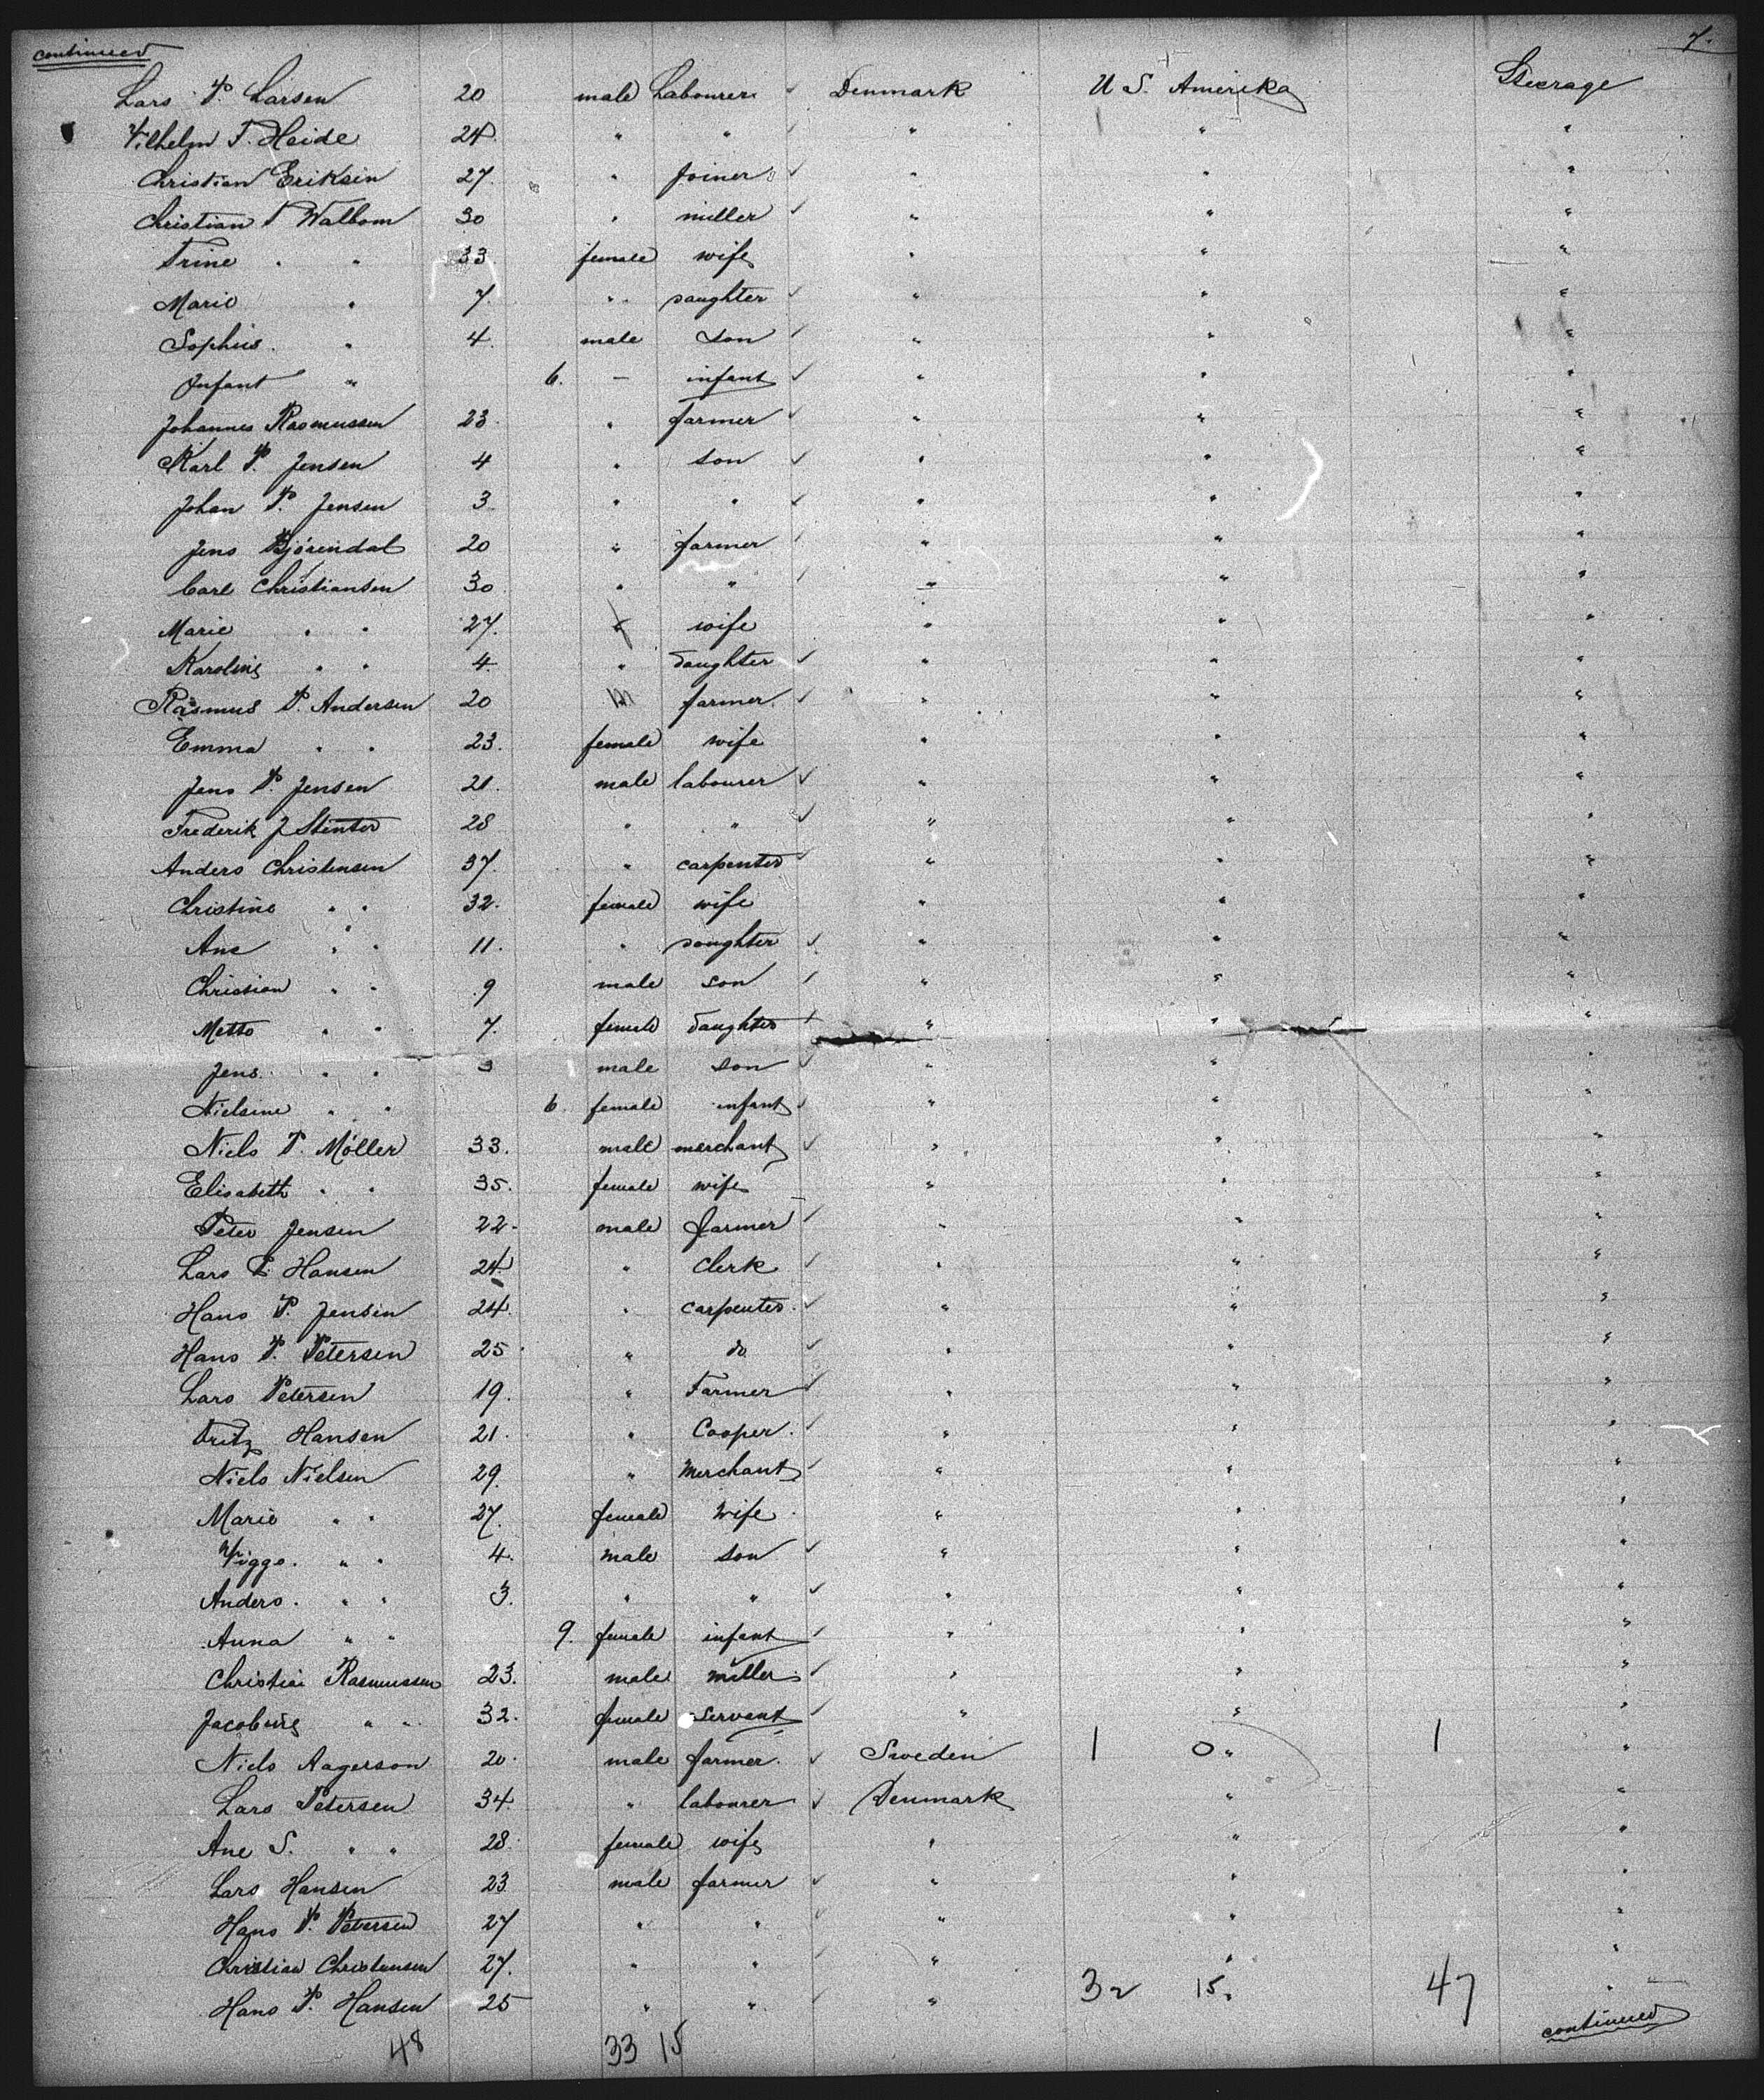 continued 7.
Lars P. Larsen 20 male Labourer Denmark U S. Amerika Steerage
Vilhelm F. Heide 24 " " " " "
Christian Eriksen 27. " joiner " " "
Christian P Walbom 30 " miller " " "
Trine " " 33 female wife " " "
Marie " 7. " daughter " " "
Sophus " 4. male son " " "
Infant " 6. – infant " " "
Johannes Rasmussen 23. " farmer " " "
Karl P. Jensen 4 " son " " "
Johan P. Jensen 3 " " " " "
Jens 20 " farmer " " "
Carl Christiansen 30 " " " " "
Marie " " 27. wife " " "
Karoline " " 4. " daughter " " "
Rasmus P. Andersen 20 m farmer " " "
Emma " " 23. female wife " " "
Jens P. Jensen 21. male labourer " " "
Frederik J 28 " " " " "
Anders Christensen 37. " carpenter " " "
Christine " " 32. female wife " " "
Ane " " 11. " daughter " " "
Christian " " 9 male son " " "
Mette " " 7. female daughter " " "
Jens " " 3 male son " " "
Nielsine " " 6. female infant " " "
Niels P. Möller 33. male merchant " " "
Elisabeth " " 35. female wife " " "
Peter Jensen 22. male farmer " " "
Lars P. Hansen 24. " Clerk " " "
Hans P. Jensen 24. " carpenter. " " "
Hans P. Petersen 25 " do " " "
Lars Petersen 19. " Farmer " " "
Fritz Hansen 21. " Cooper. " " "
Niels Nielsen 29. " Merchant " " "
Marie " " 27. female Wife " " "
Viggo. " " 4. male son " " "
Anders. " " 3. " " " " "
Anna " " 9. female infant " " "
Christian Rasmussen 23. male miller " " "
Jacobine " " 32. female Servant " " "
Niels Aagerson 20. male farmer. Sweden 1 0 " 1 "
Lars Petersen 34. " labourer Denmark " "
Ane S. " " 28. female wife " " "
Lars Hansen 23 male farmer " " "
Hans P. Petersen 27 " " " " "
Christian Christensen 27. " " " " "
Hans P. Hansen 25 " " " 32 15 " 47 "
48 33 15 continued